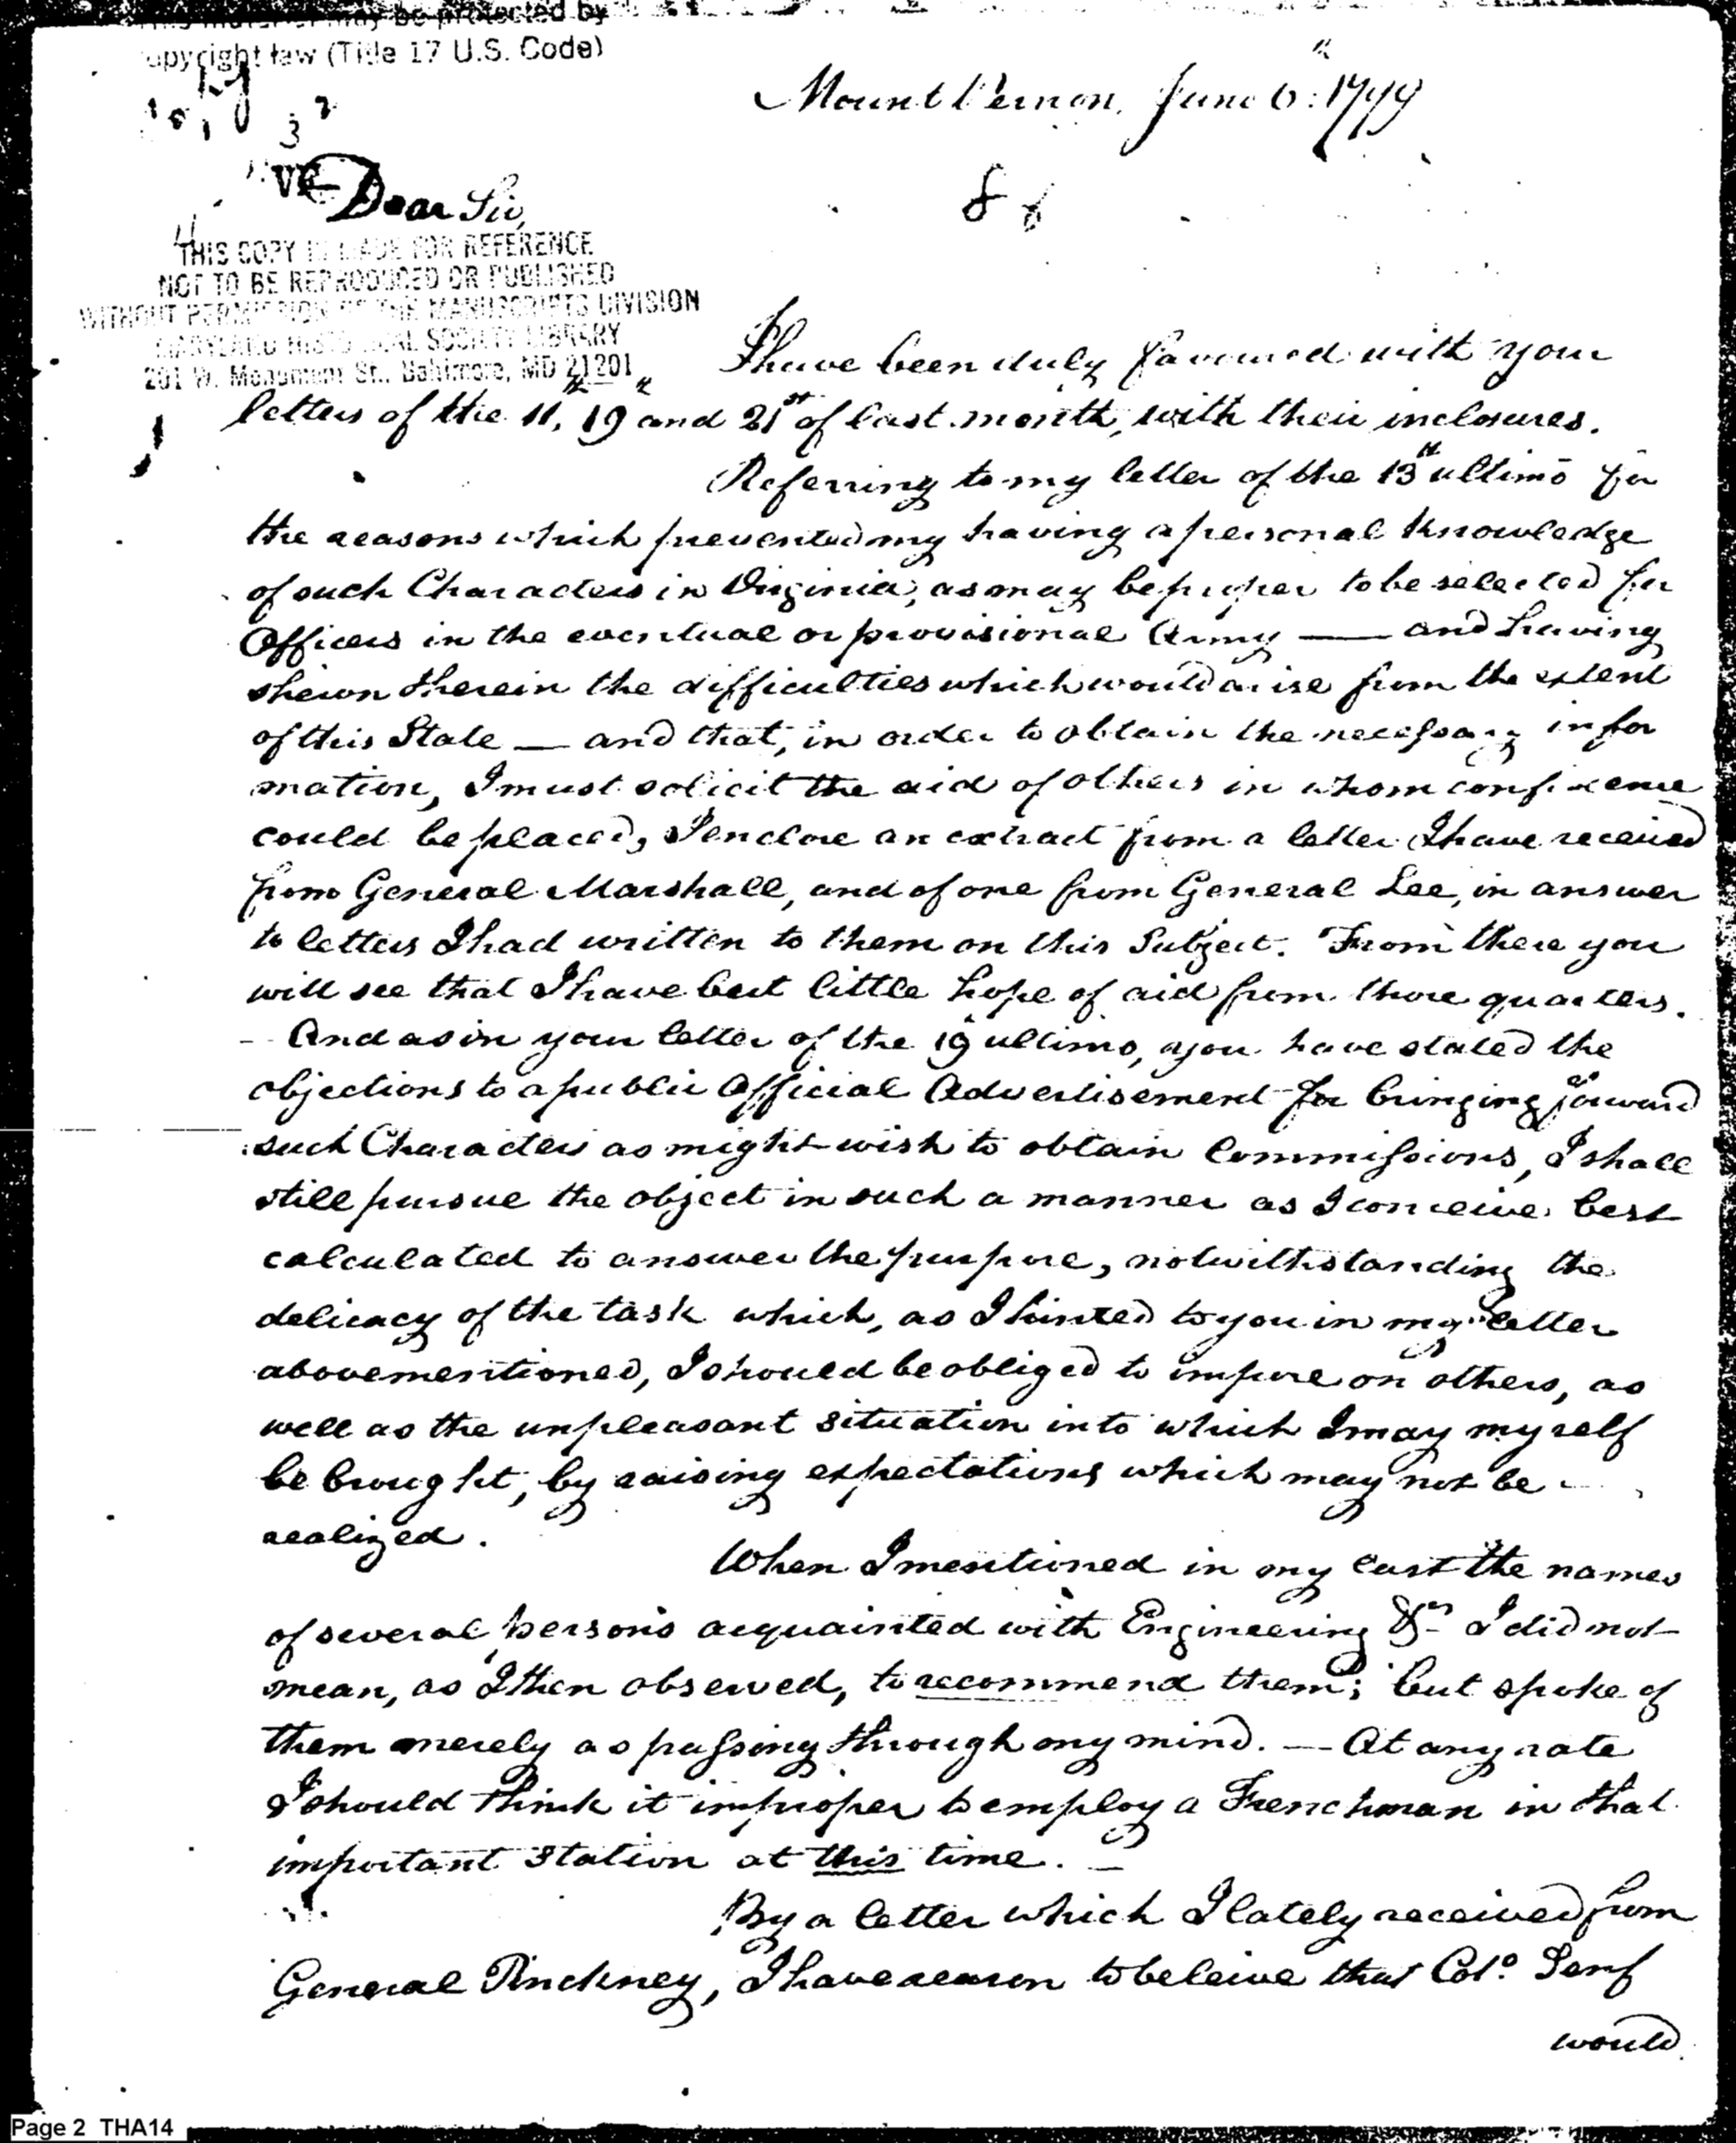 be protected by
copyright law (Title 17 U.S. Code)
Mount Vernon, June 6th: 1799
3
Dear Sir,
THIS COPY IS MADE FOR REFERENCE
NOT TO BE REPRODUCED OR PUBLISHED
WITHOUT PERMISSION OF THE MANUSCRIPTS DIVISION
MARYLAND HISTORICAL SOCIETY LIBRARY
201 W. Monument St., Baltimore, MD 21201
I have been duly favoured with your
letters of the 11th, 19th and 21st of last month, with their inclosures.
Referring to my letter of the 13th ultimo for
the reasons which prevented my having a personal knowledge
of such Characters in Virginia, as may be proper to be selected for
Officers in the eventual or provisional Army — and having
shewn therein the difficulties which would arise from the extent
of this State — and that, in order to obtain the necessary infor
mation, I must solicit the aid of others in whom confidence
could be placed, I enclose an extract from a letter I have received
from General Marshall, and of one from General Lee, in answer
to letters I had written to them on this Subject. From these you
will see that I have but little hope of aid from those quarters.
- And as in your letter of the 19th ultimo, you have stated the
objections to a public Official Advertisement for bringing forward
such Characters as might wish to obtain Commissions, I shall
still pursue the object in such a manner as I conceive best
calculated to answer the purpose, notwithstanding the
delicacy of the task which, as I hinted to you in my letter
abovementioned, I should be obliged to impose on others, as
well as the unpleasant situation into which I may myself
be brought, by raising expectations which may not be
realized.
When I mentioned in my last the names
of several persons acquainted with Engineering &ca I did not
mean, as I then observed, to recommend them; but spoke of
them merely as passing through my mind. — At any rate
I should think it improper to employ a Frenchman in that
important Station at this time. —
By a letter which I lately received from
General Pinckney, I have reason to beleive that Colo. Senf
would
Page 2 THA14